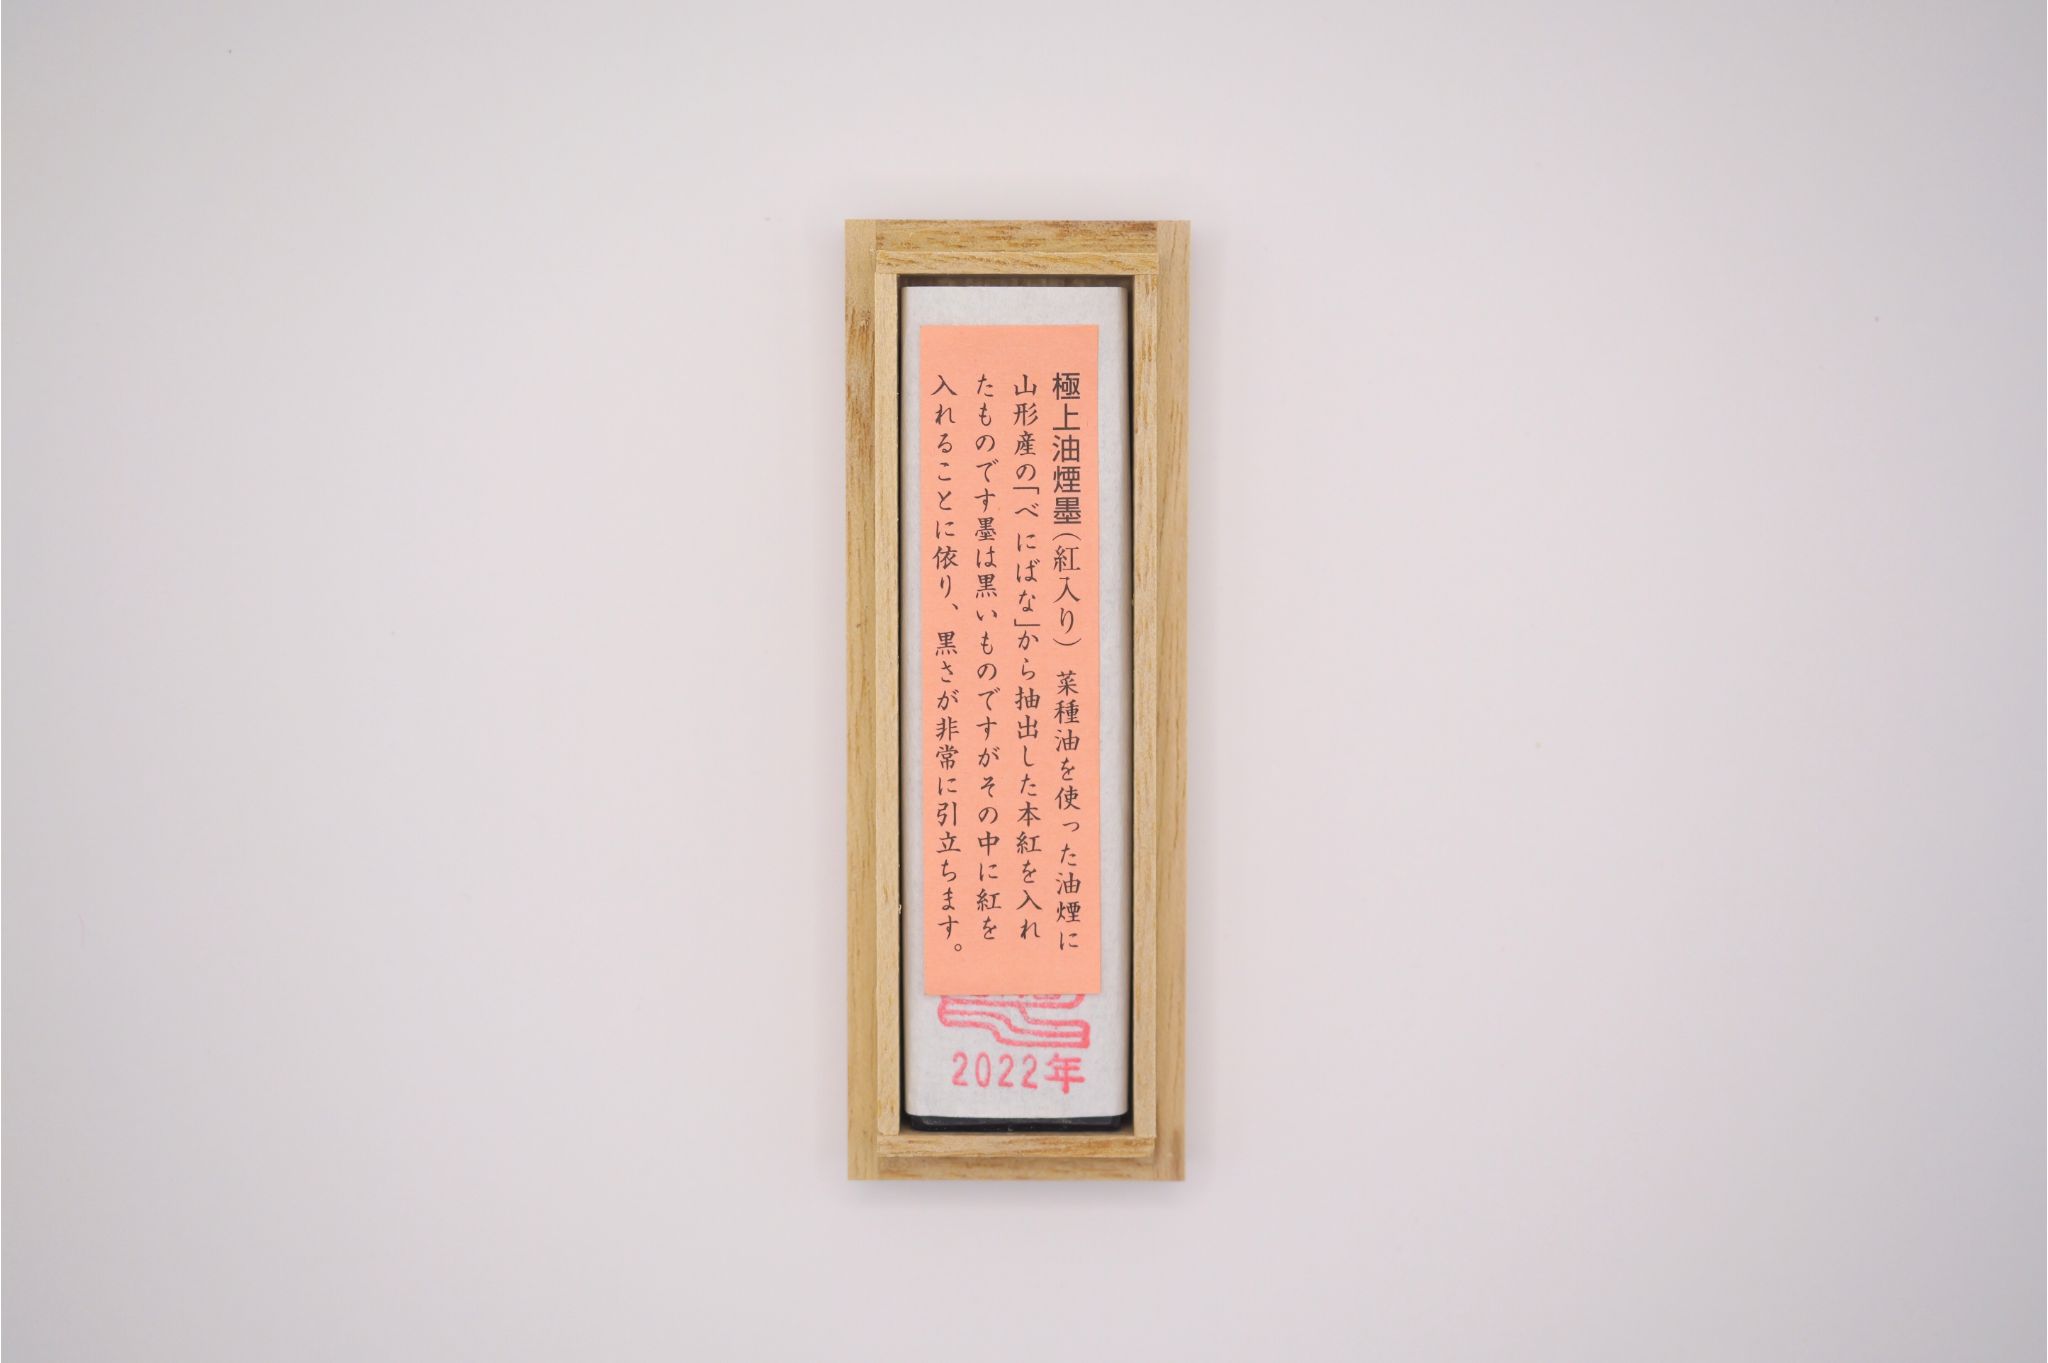 極上油煙墨(紅入り) 菜種油を使った油煙に
山形産の「べにばな」から抽出した本紅を入れ
たものです墨は黒いものですがその中に紅を
入れることに依り、黒さが非常に引立ちます。
2022年